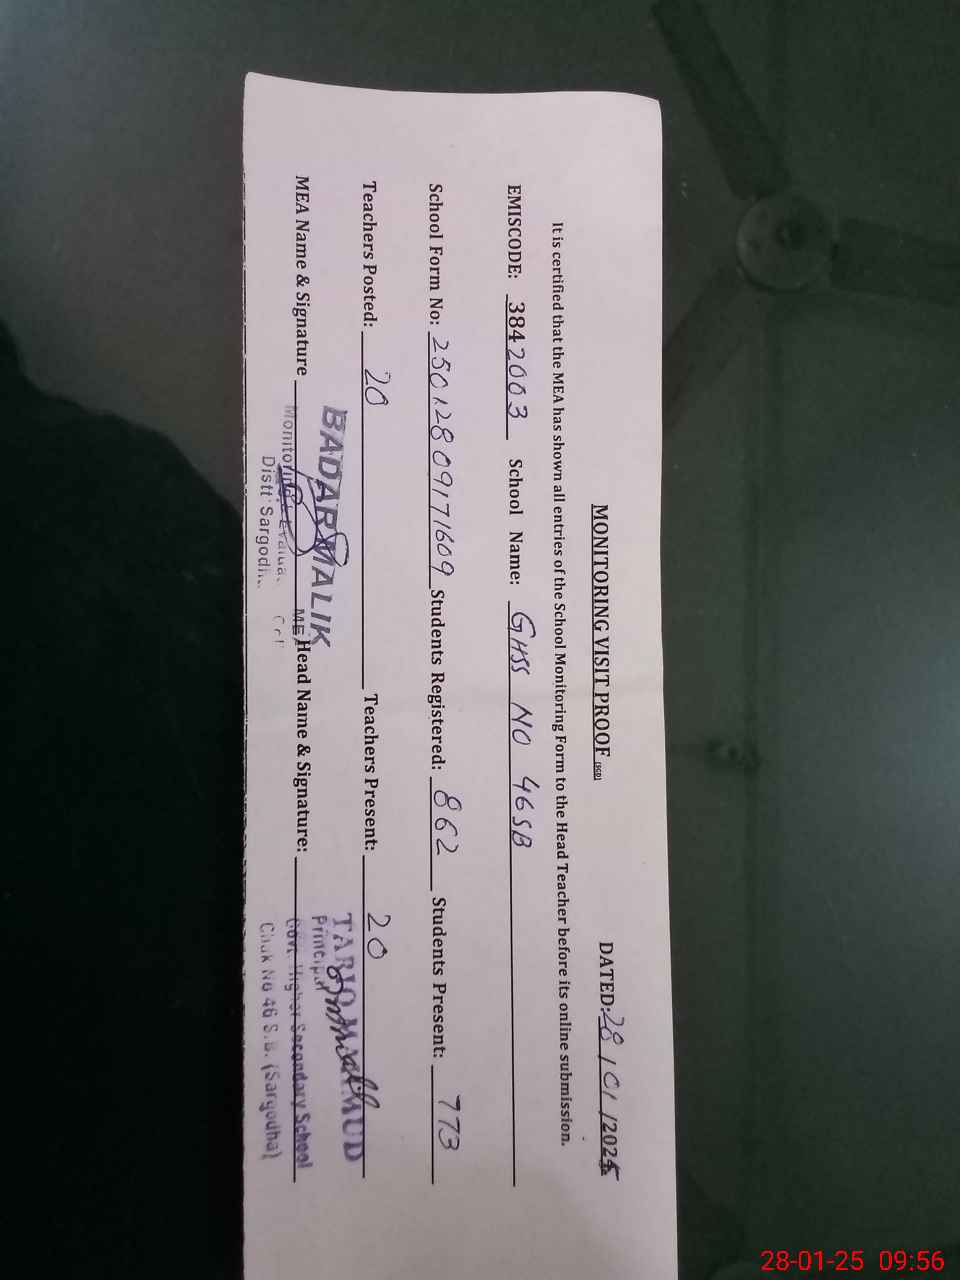 MONITORING VISIT PROOF (SGD) DATED: 28/01/2025
It is certified that the MEA has shown all entries of the School Monitoring Form to the Head Teacher before its online submission.
EMISCODE: 3842003 School Name: GHSS NO 46SB
School Form No: 25012809171609 Students Registered: 862 Students Present: 773
Teachers Posted: 20 Teachers Present: 20
MEA Name & Signature Head Name & Signature:
BADAR MALIK
Distt: Sargodh
TARIQ MAHMUD
Principal
Govt. Higher Secondary School
Chak No 46 S.B. (Sargodha)
28-01-25 09:56